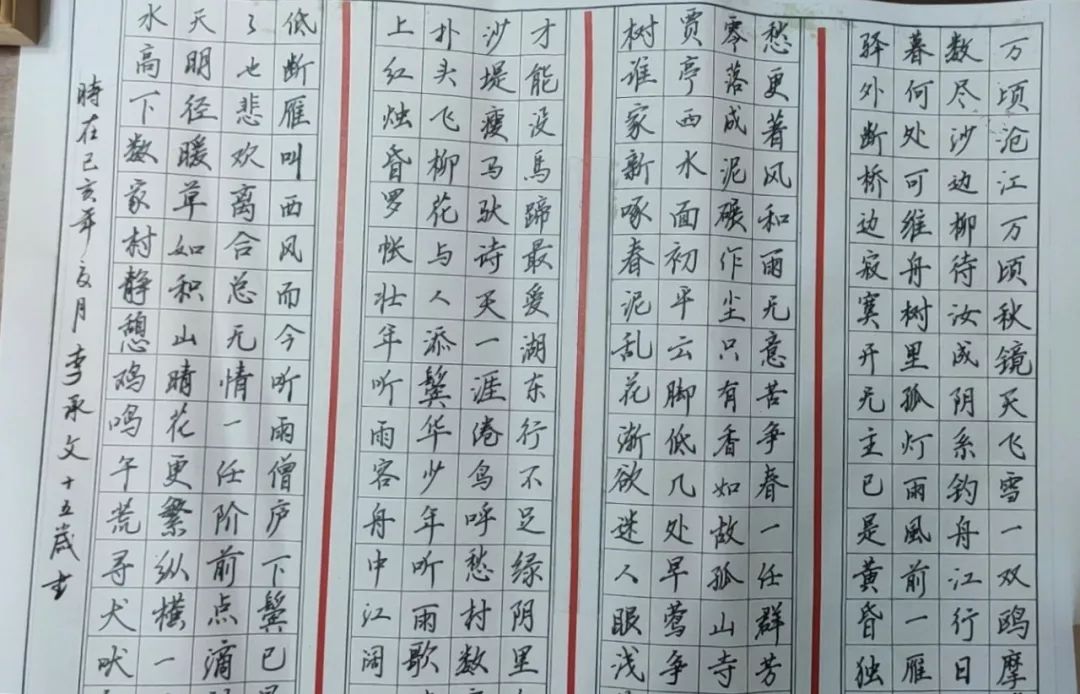 万顷沧江万顷秋镜天飞雪一双鸥摩
数尽沙边柳待汝成阴系钓舟江行日
暮何处可维舟树里孤灯雨風前一雁
驿外断桥边寂寞开无主已是黄昏独
愁更著风和雨无意苦争春一任群芳
零落成泥碾作尘只有香如故孤山寺
贾亭西水面初平云脚低几处早莺争
树谁家新啄春泥乱花渐欲迷人眼浅
才能没馬蹄最爱湖东行不足绿阴里
沙堤瘦马驮诗天一涯倦鸟呼愁村数
扑头飞柳花与人添鬓华少年听雨歌
上红烛昏罗帐壮年听雨客舟中江阔
低断雁叫西风而今听雨僧庐下鬓已
了也悲欢离合总无情一任阶前点滴
天明径暖草如积山晴花更繁纵横一
水高下数家村静憩鸡鸣午荒寻犬吠
時在己亥年夏月 李承文十五歲书